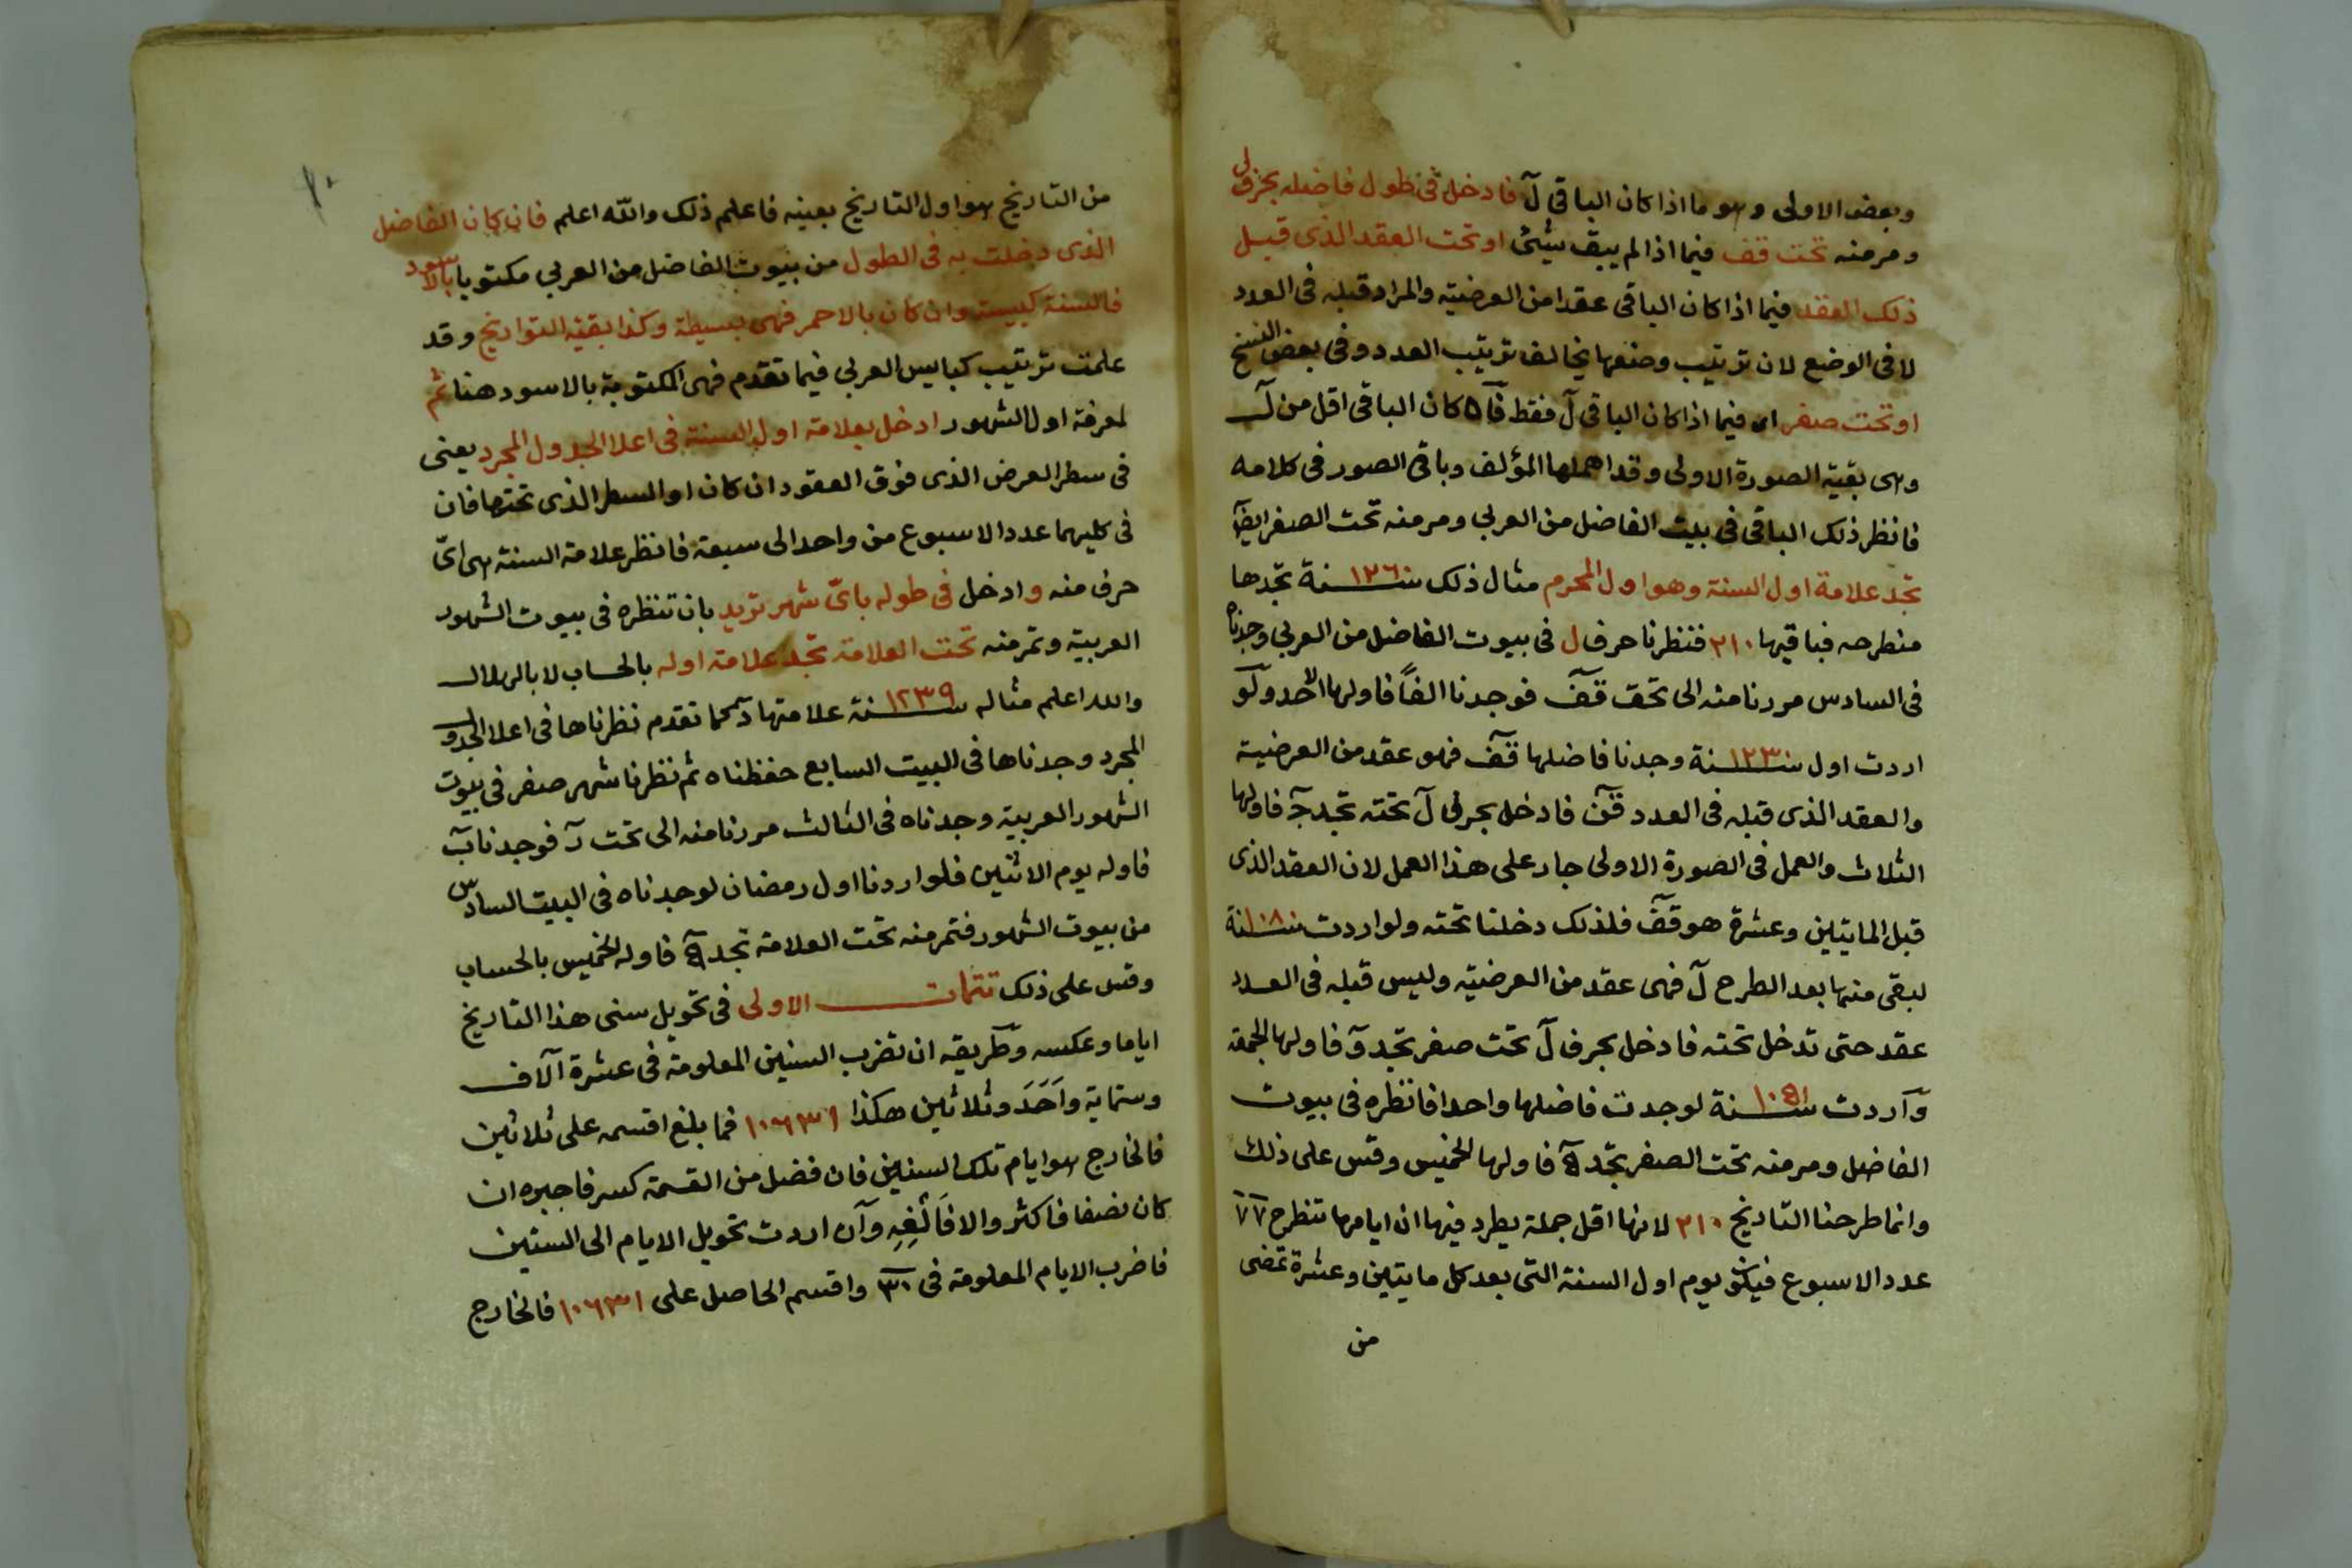 وبعض الاولى وهو ما اذا كان الباقى لَ فادخل فى طول فاضله بحرفى لَ
ومر منه تحت قف فيما اذا لم يبق شيئ او تحت العقد الذى قبل
ذلك العقد فيما اذا كان الباقى عقدا من العرضية والمراد قبله فى العدد
لا فى الوضع لان ترتيب وضعها يخالف ترتيب العدد وفى بعض النسخ
او تحت صفر اى فيما اذا كان الباقى لَ فقط كان الباقى اقل من لَ
وهى بقية الصورة الاولى وقد اهملها المؤلف وباقى الصور فى كلامه
فانظر ذلك الباقى فى بيت الفاضل من العربى ومر منه تحت الصفر ايضا
تجد علامة اول السنة وهو اول المحرم مثال ذلك سنة ١٢٦٠ تجدها
منطرحه فباقيها ٢١٠ فنظرنا حرف ل فى بيوت الفاضل من العربى وجدناه
فى السادس مررنا منه الى تحت قف فوجدنا الفاً فاولها الاحد ولو
اردت اول سنة ١٢٣٠ وجدنا فاضلها قف فهو عقد من العرضية
والعقد الذى قبله فى العدد قن فادخل بحرفى لَ تحته تجد جَ فاولها
الثلاث والعمل فى الصورة الاولى جار على هذا العمل لان العقد الذى
قبل المايتين وعشرة هو قف فلذلك دخلنا تحته ولو اردت سنة ١٠٨٠
لبقى منها بعد الطرح لَ فهى عقد من العرضية وليس قبله فى العدد
عقد حتى تدخل تحته فادخل بحرف لَ تحت صفر تجد وَ فاولها الجمعة
وآردت سنة ١٠٥١ لوجدت فاضلها واحدا فانظره فى بيوت
الفاضل ومر منه تحت الصفر تجد هَ فاولها الخميس وقس على ذلك
وانما طرحنا التاريخ ٢١٠ لانها اقل جملة يطرد فيها ان ايامها تنطرح ٧٧
عدد الاسبوع فيكون يوم اول السنة التى بعد كل مايتين وعشرة تمضى
من
من التاريخ هو اول التاريخ بعينه فاعلم ذلك والله اعلم فان كان الفاضل
الذى دخلت به فى الطول من بيوت الفاضل من العربى مكتوبا بالاسود
فالسنة كبيسة وان كان بالاحمر فهى بسيطة وكذا بقية التواريخ وقد
علمت ترتيب كبايس العربى فيما تقدم فهى المكتوبة بالاسود هنا ثم
لمعرفة اول الشهور ادخل بعلامة اول السنة فى اعلا الجدول المجرد يعنى
فى سطر العرض الذى فوق العقود ان كان او السطر الذى تحتها فان
فى كليهما عدد الاسبوع من واحد الى سبعة فانظر علامة السنة هى اىّ
حرف منه وادخل فى طوله باىّ شهر تريد بان تنظره فى بيوت الشهور
العربية وتمر منه تحت العلامة تجد علامة اوله بالحساب لا بالهلال
والله اعلم مثاله سنة ١٢٣٩ علامتها كما تقدم نظرناها فى اعلا الجدول
المجرد وجدناها فى البيت السابع حفظناه ثم نظرنا شهر صفر فى بيوت
الشهور العربية وجدناه فى الثالث مررنا منه الى تحت فوجدنا بَ
فاوله يوم الاثنين فلو اردنا اول رمضان لوجدناه فى البيت السادس
من بيوت الشهور فتمر منه تحت العلامة تجد هَ فاوله الخميس بالحساب
وقس على ذلك تتمات الاولى فى تحويل سنى هذا التاريخ
اياما وعكسه وطريقه ان تضرب السنين المعلومة فى عشرة آلاف
وستماية واَحَدَ وثلاثين هكذا ١٠٦٣١ فما بلغ اقسمه على ثلاثين
فالخارج هو ايام تلك السنين فان فضل من القسمة كسر فاجبره ان
كان نصفا فاكثر والا فَالْغِهِ وآن اردت تحويل الايام الى السنين
فاضرب الايام المعلومة فى ٣٠ واقسم الحاصل على ١٠٦٣١ فالخارج